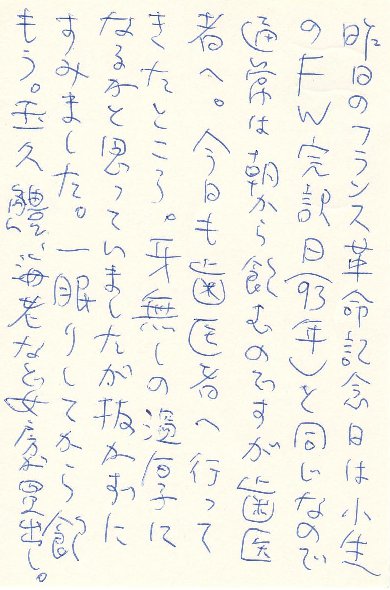 昨日のフランス革命記念日は小生
のFW完訳日(93年)と同じなので
通常は朝から飲むのですが歯医
者へ。今日も歯医者へ行って
きたところ。牙無しのに
なるかと思っていましたが抜かずに
すみました。一眠りしてから飲
もう。久鱧、海老など女房が買出し。